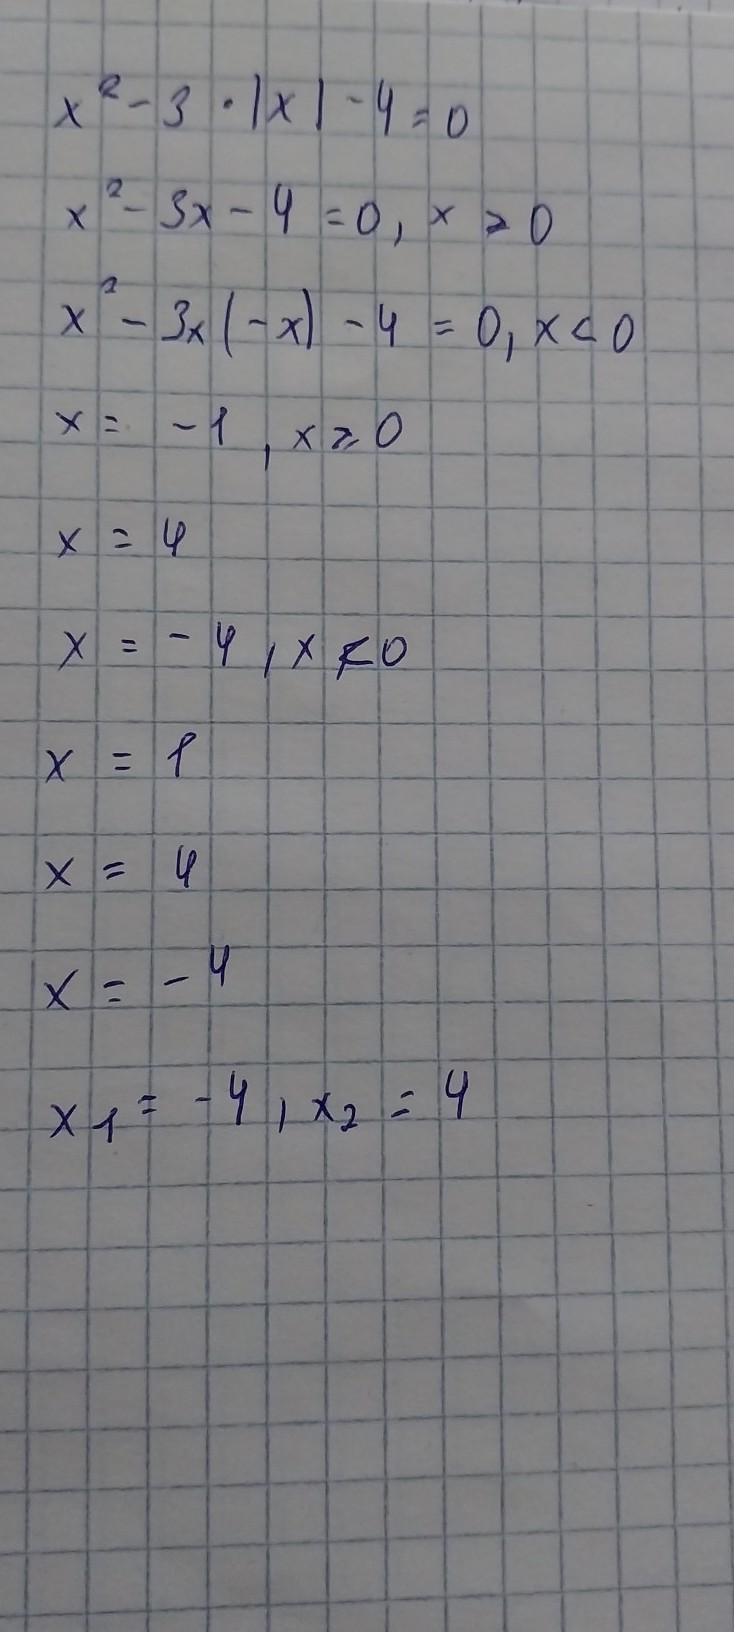 x² - 3 · |x| - 4 = 0
x² - 3x - 4 = 0, x ≥ 0
x² - 3x(-x) - 4 = 0, x < 0
x = -1, x ≥ 0
x = 4
x = -4, x < 0
x = 1
x = 4
x = -4
x₁ = -4, x₂ = 4